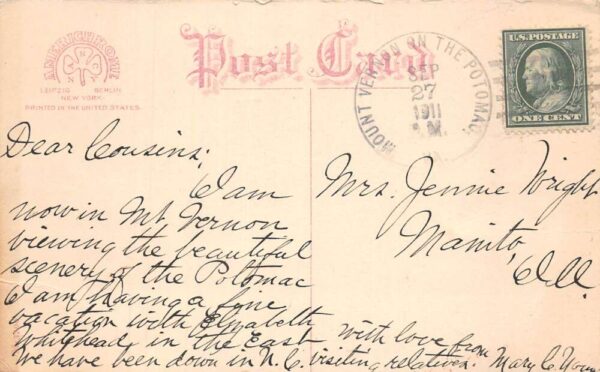 AMERICHROME
LEIPZIG BERLIN
NEW YORK
PRINTED IN THE UNITED STATES
Post Card
MOUNT VERNON ON THE POTOMAC,
SEP
27
1911
M.
U.S. POSTAGE
ONE CENT
Dear Cousins;
I am
now in Mt. Vernon
viewing the beautiful
scenery of the Potomac
I am having a fine
vacation with Elizabeth
Whitehead in the East
We have been down in N.C. visiting relatives.
with love from
Mary C
Mrs. Jennie Wright
Manito,
Ill.